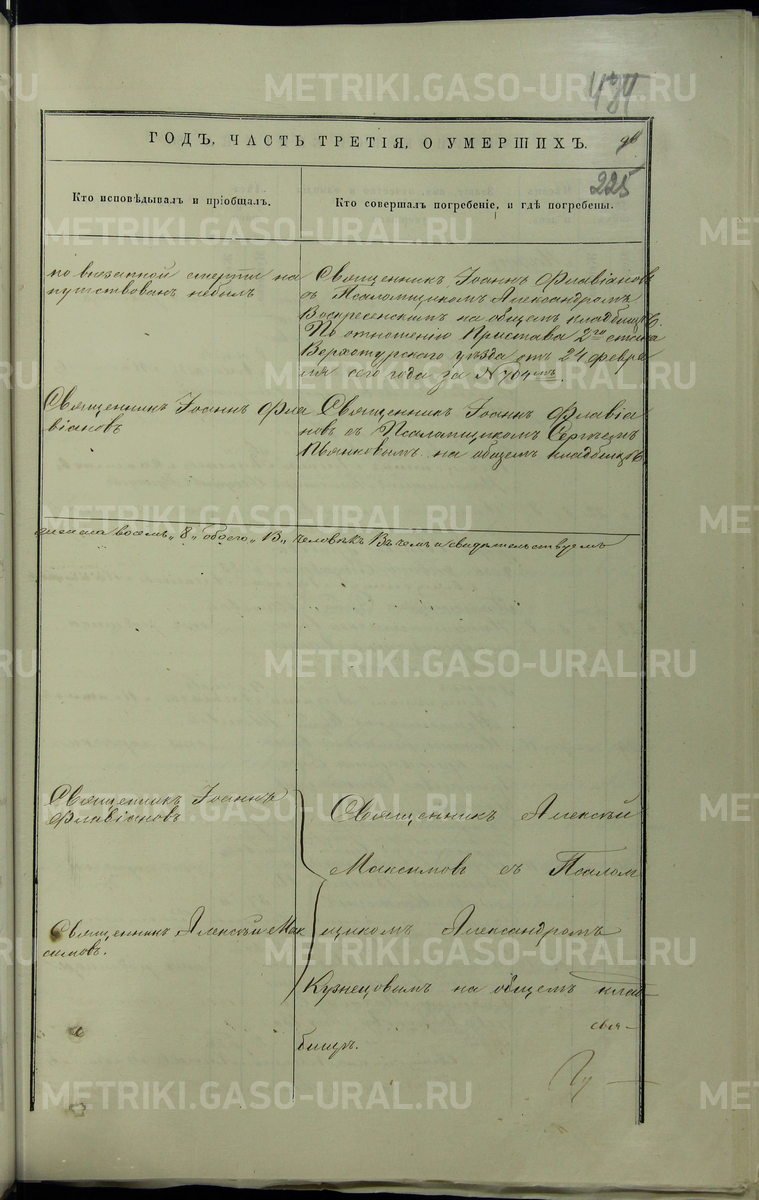 METRIKI.GASO-URAL.RU
ГОДЪ, ЧАСТЬ ТРЕТІЯ, О УМЕРШИХЪ.
225
Кто исповѣдывалъ и пріобщалъ.
Кто совершалъ погребеніе, и гдѣ погребены.
по внезапной смерти на
путствованъ небылъ
Священникъ Іоаннъ Флавіановъ
съ Псаломщикомъ Александромъ
Воскресенскимъ на общемъ кладбищѣ.
По отношенію Пристава 2го стана
Верхотурского уѣзда отъ 24 февра
ля сего года за №704мъ.
Священникъ Іоаннъ Фла
віановъ
Священникъ Іоаннъ Флавіа
новъ съ Псаломщикомъ Сергѣемъ
Пьянковымъ на общемъ кладбищѣ.
восемь „8„ обоего „ человѣкъ Въ чемъ и свидѣтельствуемъ
Священникъ Іоаннъ
Флавіановъ
Священникъ Алексѣй
Максимовъ съ Псалом
Священникъ Алексѣй Мак
симовъ.
щикомъ Александромъ
Кузнецовымъ на общемъ клад
бищѣ.
METRIKI.GASO-URAL.RU